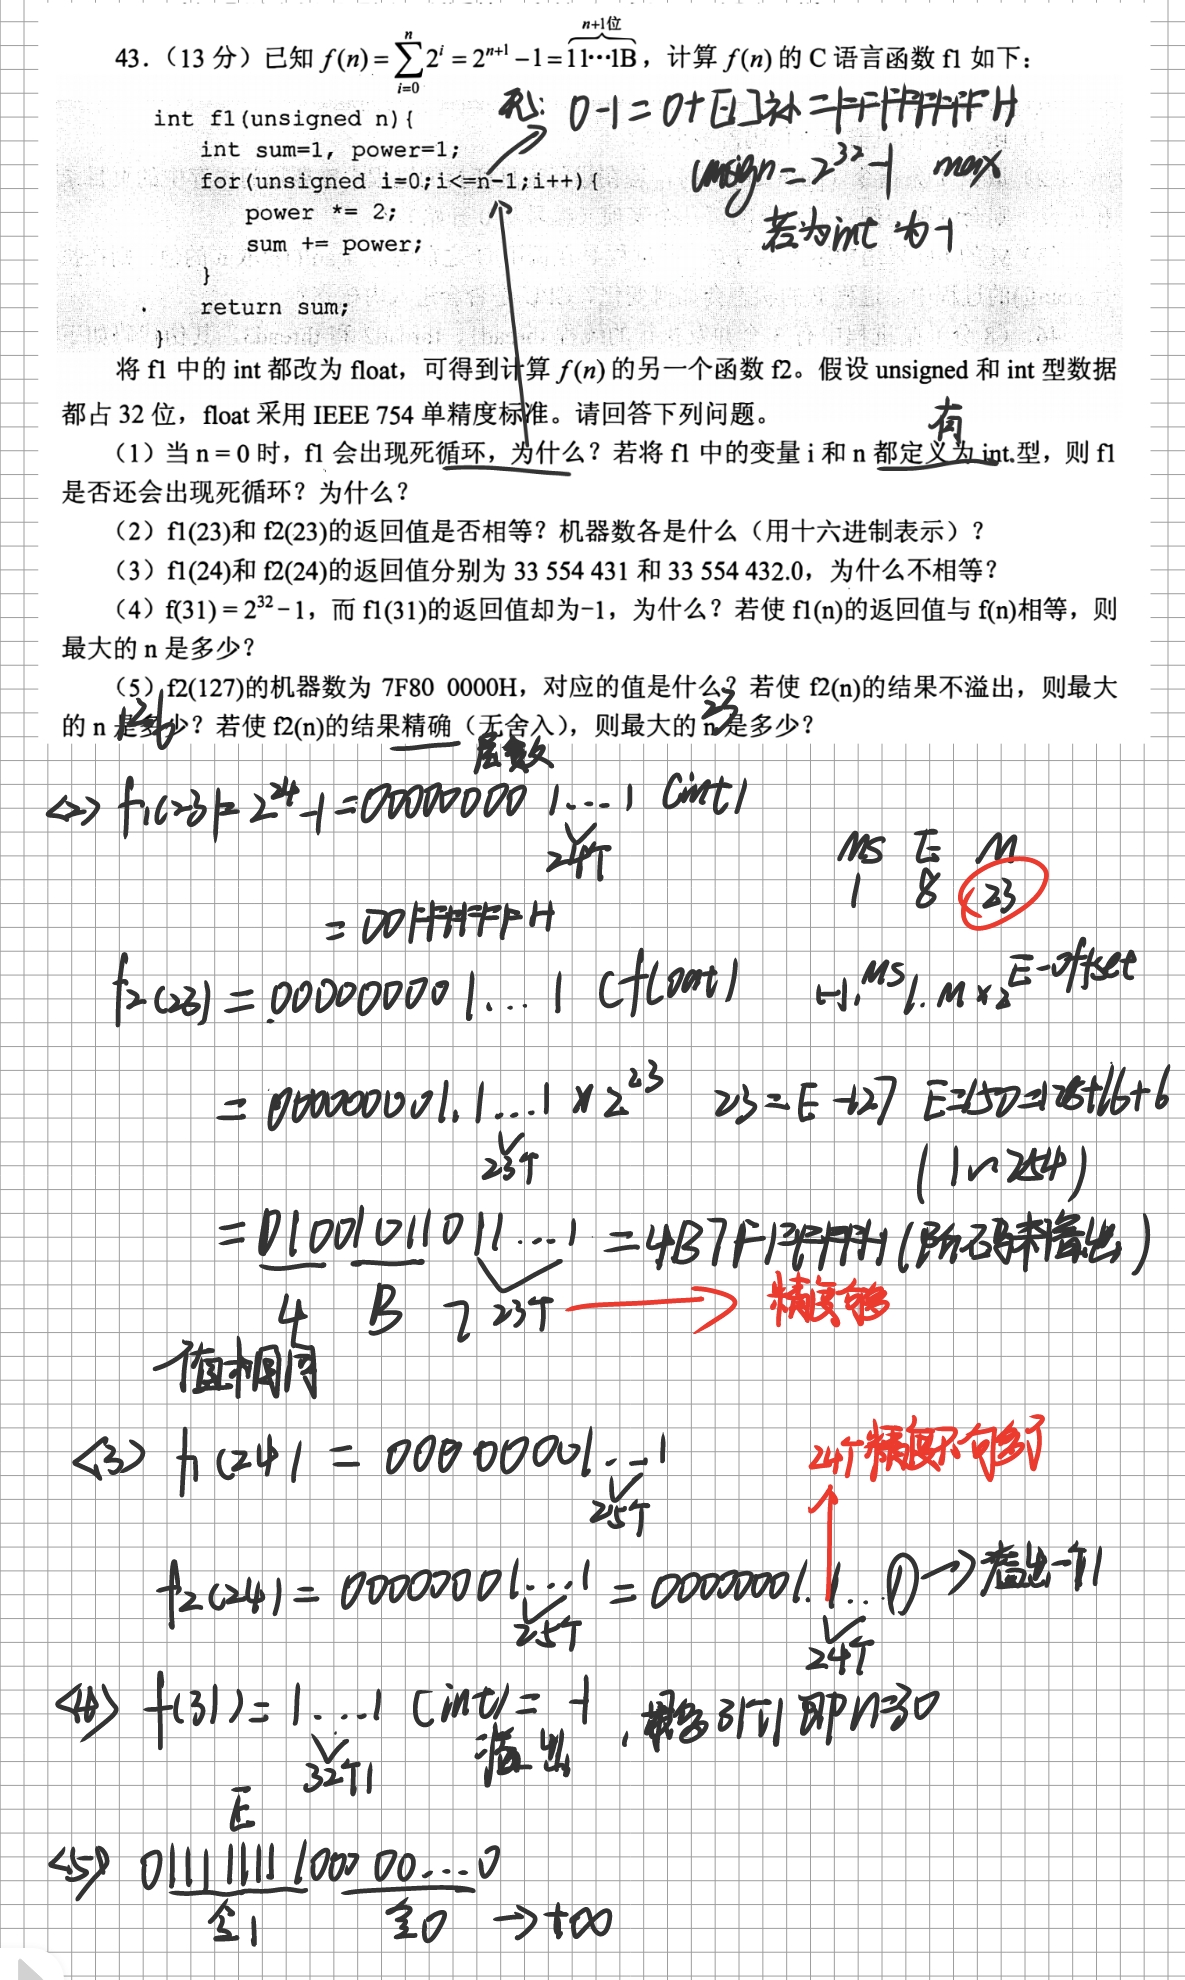 43.（13 分）已知 f(n)=∑_{i=0}^{n} 2^i = 2^{n+1} −1 = 11⋯1B（n+1位），计算 f(n) 的 C 语言函数 f1 如下：
int f1(unsigned n){
int sum=1, power=1;
for(unsigned i=0;i<=n-1;i++){
power *= 2;
sum += power;
}
return sum;
}
死: 0-1=0+[-1]补=FFFFFFFFH
unsign=2^{32}-1 max
若为int 为-1
将 f1 中的 int 都改为 float，可得到计算 f(n) 的另一个函数 f2。假设 unsigned 和 int 型数据
都占 32 位，float 采用 IEEE 754 单精度标准。请回答下列问题。
（1）当 n = 0 时，f1 会出现死循环，为什么？若将 f1 中的变量 i 和 n 都定义为 int 型，则 f1
是否还会出现死循环？为什么？
（2）f1(23)和 f2(23)的返回值是否相等？机器数各是什么（用十六进制表示）？
（3）f1(24)和 f2(24)的返回值分别为 33 554 431 和 33 554 432.0，为什么不相等？
（4）f(31) = 2^{32} − 1，而 f1(31)的返回值却为−1，为什么？若使 f1(n)的返回值与 f(n)相等，则
最大的 n 是多少？
（5）f2(127)的机器数为 7F80 0000H，对应的值是什么？若使 f2(n)的结果不溢出，则最大
的 n 是多少？若使 f2(n)的结果精确（无舍入），则最大的 n 是多少？
126
23
<2> f1(23)=2^{24}-1=00000000 1....1 (int)
24个
MS E M
1 8 23
=00FFFFFFH
f2(23)=00000000 1....1 (float)
(-1)^{MS} 1.M×2^{E-offset}
=00000000 1.1...1 × 2^{23} 23=E-127 E=150=128+16+6
23个
(1~254)
=01001011011...1 =4B7FFFFFH(阶码未溢出)
4 B 7 23个
精度够
值相同
<3> f1(24) = 0000000 1...1
25个
24个精度不够了
f2(24)=0000000 1...1=0000000 1.1...1→溢出一个1
25个
24个
<4> f(31)=1....1 (int)=-1
32个1
溢出
,最多31个1 即n=30
E
<5> 0 11111111 000 00...0
全1 全0 →+∞